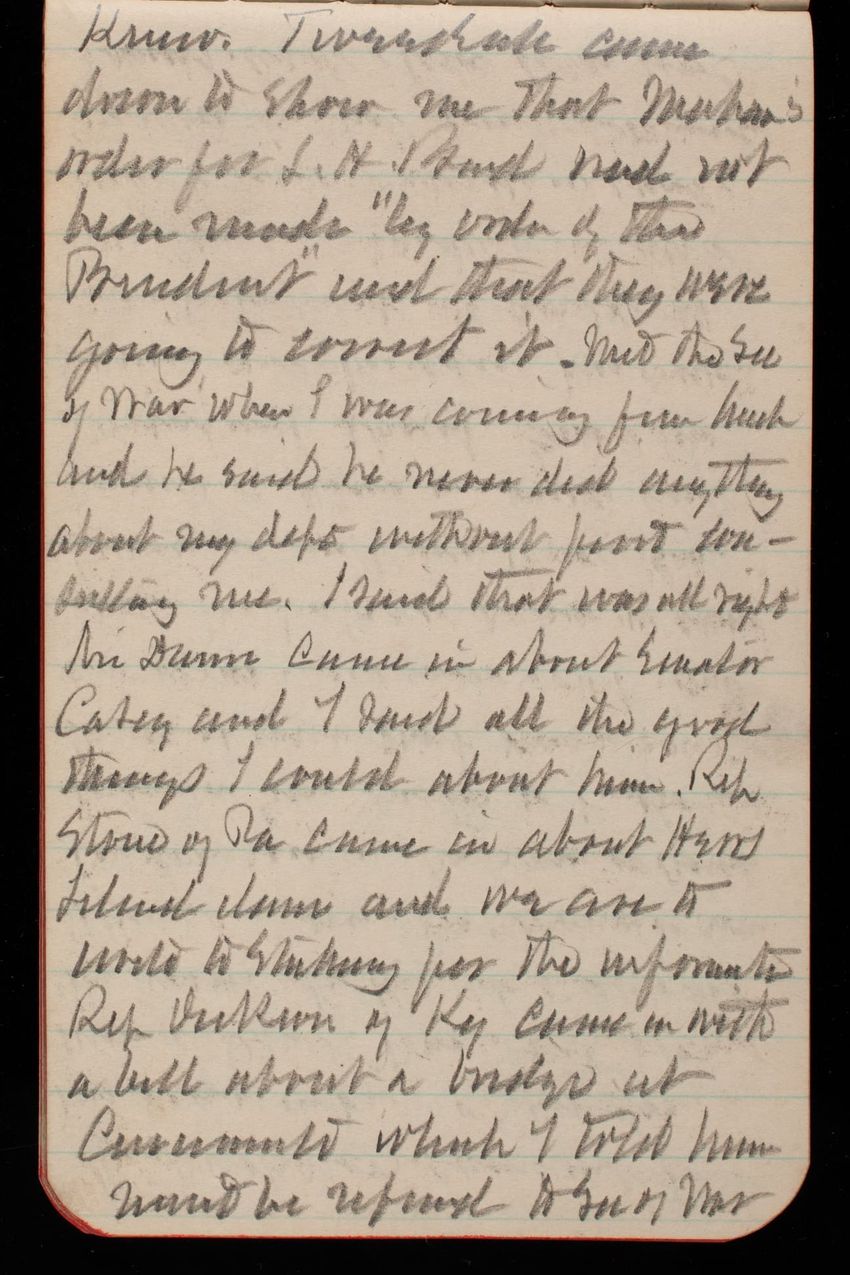 Know. Tweeddale came
down to show me that Mahan's
order for L. H. Board had not
been made "by order of the
President" and that they were
going to correct it. Met the Sec
of War when I was coming from lunch
and he said he never did anything
about my dept without first con-
sulting me. I said that was all right
Mr Dunn came in about Senator
Casey and I said all the good
things I could about him. Rep
Stone of Pa came in about Herrs
Island dam and we are to
write to Stickney for the informatn
Rep Dickson of Ky came in with
a bill about a bridge at
Cincinnati which I told him
must be referred to Sec of War